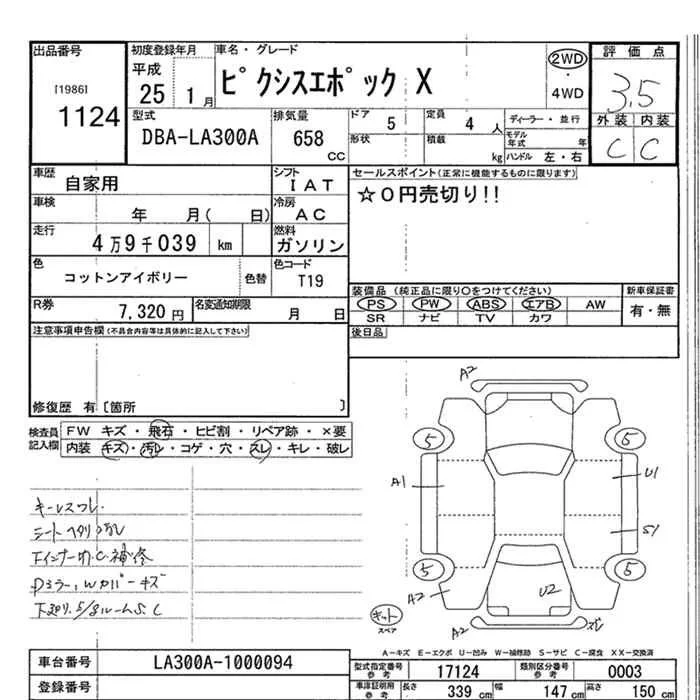 出品番号 初度登録年月 車名・グレード 評価点
[1986] 平成 ピクシスエポック X 2WD ・ 4WD 3.5
1124 25 1月
型式 排気量 ドア 5 定員 4人 ディーラー・並行 外装 内装
DBA-LA300A 658 CC 形状 積載 kg モデル年式 年 C C
ハンドル 左・右
車歴 自家用 シフト IAT セールスポイント(正常に機能するものに限ります)
☆0円売切り!!
車検 年 月( 日) 冷房 AC
走行 4万9千039 km 燃料 ガソリン
色 コットンアイボリー 色替 色コード T19
装備品 (純正品に限り○をつけてください) 新車保証書
R券 7,320円 名変通知期限 月 日 PS PW ABS エアB AW 有・無
SR ナビ TV カワ
注意事項申告欄(不具合内容等は具体的に記入して下さい) 後日品
修復歴 有 [箇所 ]
検査員記入欄 FW キズ・飛石・ヒビ割・リペア跡・×要
内装 キズ・汚レ・コゲ・穴・スレ・キレ・破レ
キーレスワレ
シートヘタリ汚レ
下廻り S/Sルーム S.C
A2
5 5
A1 U1
S1
5 5
A2 U2
キット スペア A2 ズレ
A-キズ E-エクボ U-凹み W-補修跡 S-サビ C-腐食 XX-交換済
車台番号 LA300A-1000094 型式指定番号 参考 17124 類別区分番号 参考 0003
登録番号 車庫証明用 参考 長さ 339 cm 幅 147 cm 高さ 150 cm